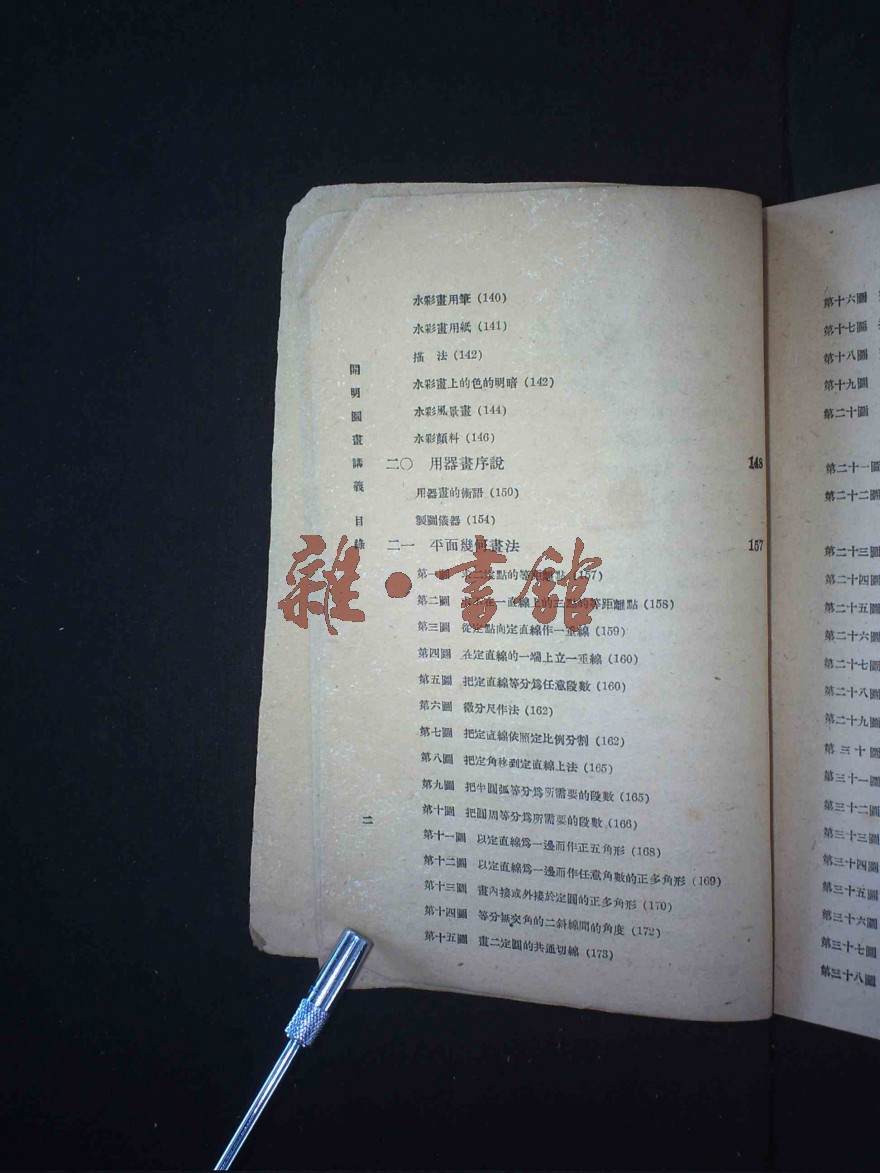 水彩畫用筆 (140)
水彩畫用紙 (141)
描 法 (142)
水彩畫上的色的明暗 (142)
水彩風景畫 (144)
水彩顏料 (146)
二〇 用器畫序說 148
用器畫的術語 (150)
製圖儀器 (154)
二一 平面幾何畫法 157
第一圖 求二定點的等距離點 (157)
第二圖 求不在一直線上的三點的等距離點 (158)
第三圖 從定點向定直線作一垂線 (159)
第四圖 在定直線的一端上立一垂線 (160)
第五圖 把定直線等分爲任意段數 (160)
第六圖 微分尺作法 (162)
第七圖 把定直線依照定比例分割 (162)
第八圖 把定角移到定直線上法 (165)
第九圖 把半圓弧等分爲所需要的段數 (165)
第十圖 把圓周等分爲所需要的段數 (166)
第十一圖 以定直線爲一邊而作正五角形 (168)
第十二圖 以定直線爲一邊而作任意角數的正多角形 (169)
第十三圖 畫內接或外接於定圓的正多角形 (170)
第十四圖 等分無交角的二斜線間的角度 (172)
第十五圖 畫二定圓的共通切線 (173)
開明圖畫講義 目錄
二
雜·書館
第十六圖
第十七圖
第十八圖
第十九圖
第二十圖
第二十一圖
第二十二圖
第二十三圖
第二十四圖
第二十五圖
第二十六圖
第二十七圖
第二十八圖
第二十九圖
第三十圖
第三十一圖
第三十二圖
第三十三圖
第三十四圖
第三十五圖
第三十六圖
第三十七圖
第三十八圖